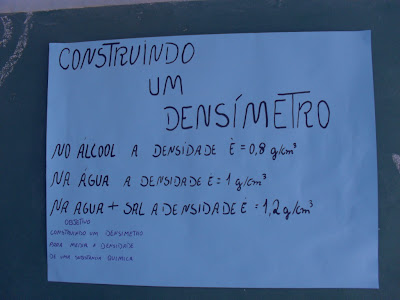 CONSTRUINDO
UM
DENSÍMETRO
NO ÁLCOOL A DENSIDADE É = 0,8 g/cm³
NA ÁGUA A DENSIDADE E = 1 g/cm³
NA AGUA + SAL A DENSIDADE É = 1,2 g/cm³
OBJETIVO
CONSTRUINDO UM DENSIMETRO
PARA MEDIR A DENSIDADE
DE UMA SUBSTÂNCIA QUIMICA